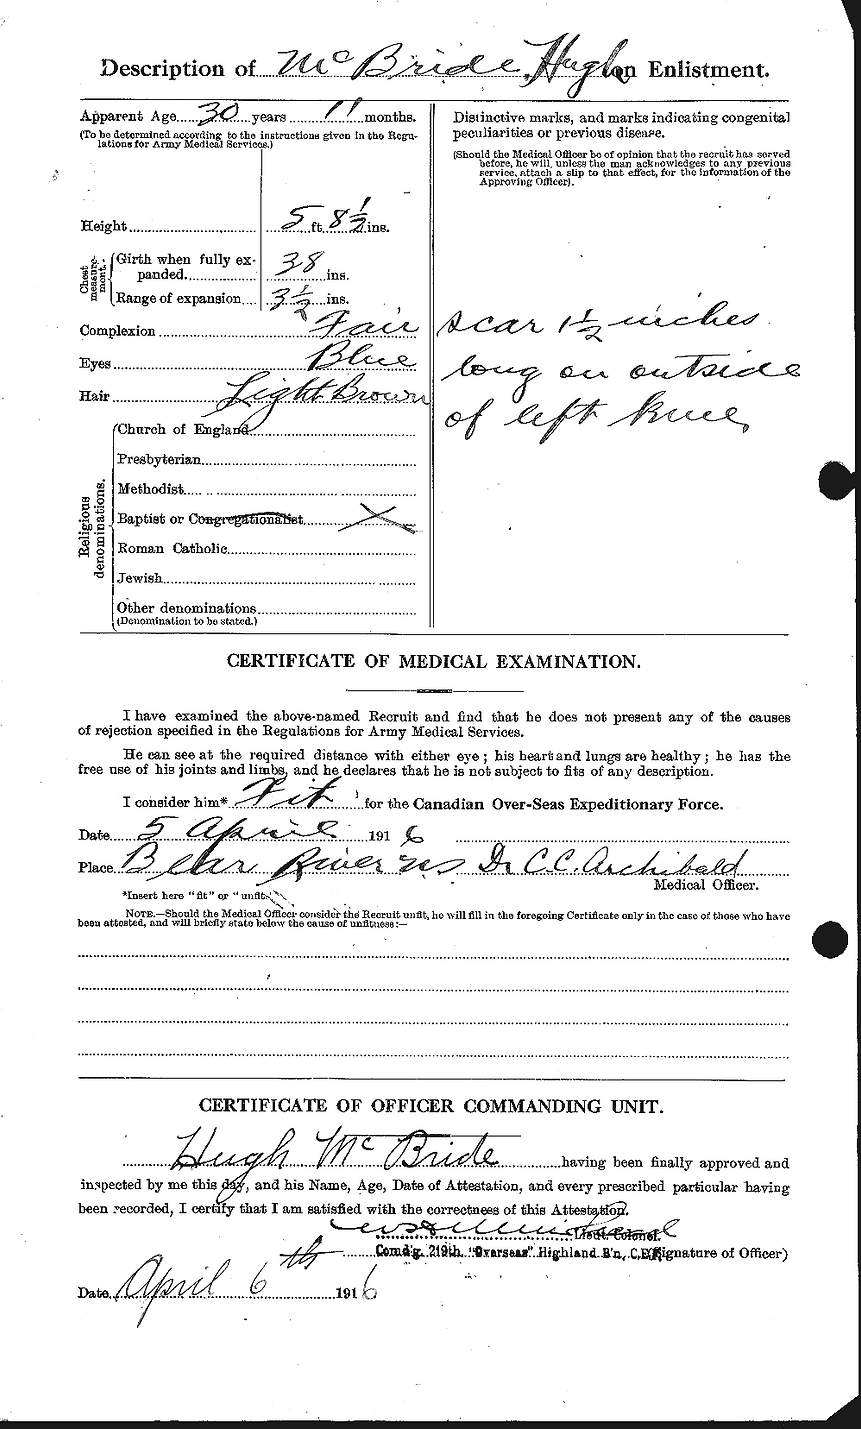 Description of McBride, Hugh on Enlistment.
Apparent Age 30 years 11 months.
(To be determined according to the instructions given in the Regu-
lations for Army Medical Services.)
Height 5 ft. 8 1/2 ins.
Chest measure-ment.
Girth when fully ex-
panded 38 ins.
Range of expansion 3 1/2 ins.
Complexion Fair
Eyes Blue
Hair Light Brown
Religious denominations.
Church of England
Presbyterian
Methodist
Baptist or Congregationalist X
Roman Catholic
Jewish
Other denominations
(Denomination to be stated.)
Distinctive marks, and marks indicating congenital
peculiarities or previous disease.
(Should the Medical Officer be of opinion that the recruit has served
before, he will, unless the man acknowledges to any previous
service, attach a slip to that effect, for the information of the
Approving Officer).
scar 1 1/2 inches
long on outside
of left knee
CERTIFICATE OF MEDICAL EXAMINATION.
I have examined the above-named Recruit and find that he does not present any of the causes
of rejection specified in the Regulations for Army Medical Services.
He can see at the required distance with either eye; his heart and lungs are healthy; he has the
free use of his joints and limbs, and he declares that he is not subject to fits of any description.
I consider him* Fit for the Canadian Over-Seas Expeditionary Force.
Date 5 April 1916
Place Bear River NS Dr C.C. Archibald
Medical Officer.
*Insert here "fit" or "unfit."
NOTE.—Should the Medical Officer consider the Recruit unfit, he will fill in the foregoing Certificate only in the case of those who have
been attested, and will briefly state below the cause of unfitness:—
CERTIFICATE OF OFFICER COMMANDING UNIT.
Hugh McBride having been finally approved and
inspected by me this day, and his Name, Age, Date of Attestation, and every prescribed particular having
been recorded, I certify that I am satisfied with the correctness of this Attestation.
Lieut. Colonel
Comd'g. 219th "Overseas" Highland B'n, C.E.F. (Signature of Officer)
Date April 6th 1916